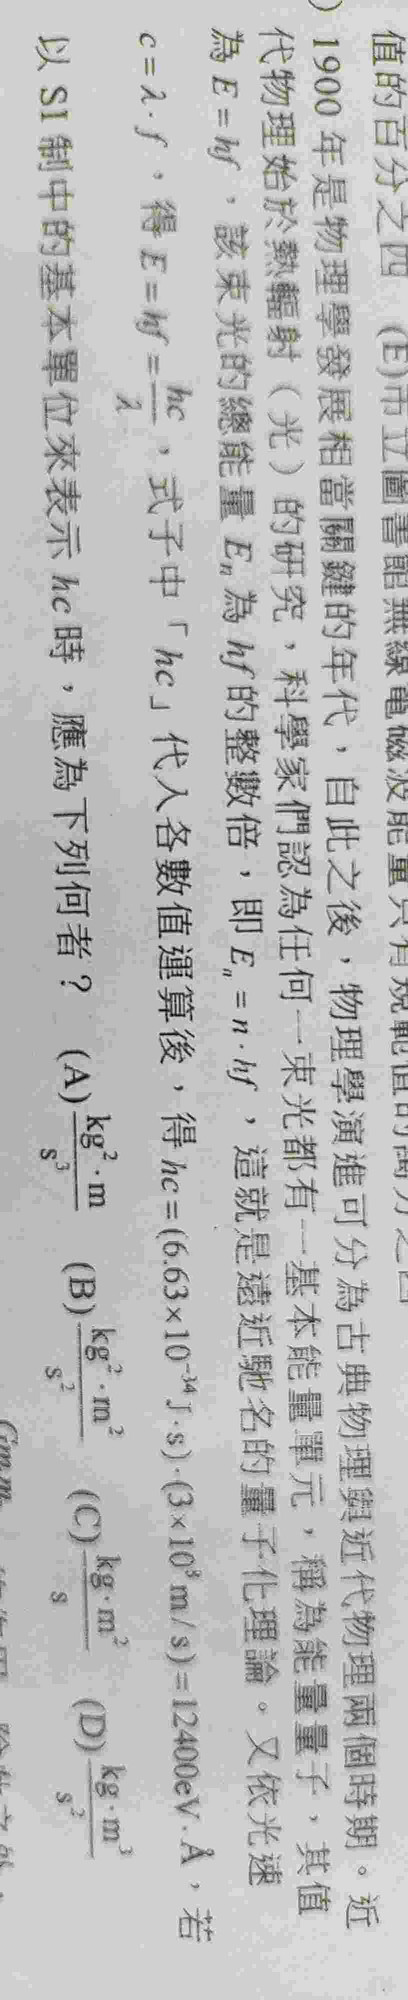 值的百分之四 (E)市立圖書館無線電磁波能量只有規範值的萬分之四
) 1900 年是物理學發展相當關鍵的年代，自此之後，物理學演進可分為古典物理與近代物理兩個時期。近
代物理始於熱輻射（光）的研究，科學家們認為任何一束光都有一基本能量單元，稱為能量量子，其值
為 E = hf，該束光的總能量 Eₙ 為 hf 的整數倍，即 Eₙ = n · hf，這就是遠近馳名的量子化理論。又依光速
c = λ · f，得 E = hf = hc/λ，式子中「hc」代入各數值運算後，得 hc = (6.63×10⁻³⁴ J · s) · (3×10⁸ m/s) = 12400eV · Å，若
以 SI 制中的基本單位來表示 hc 時，應為下列何者？ (A) kg² · m/s³ (B) kg² · m²/s² (C) kg · m²/s (D) kg · m³/s²